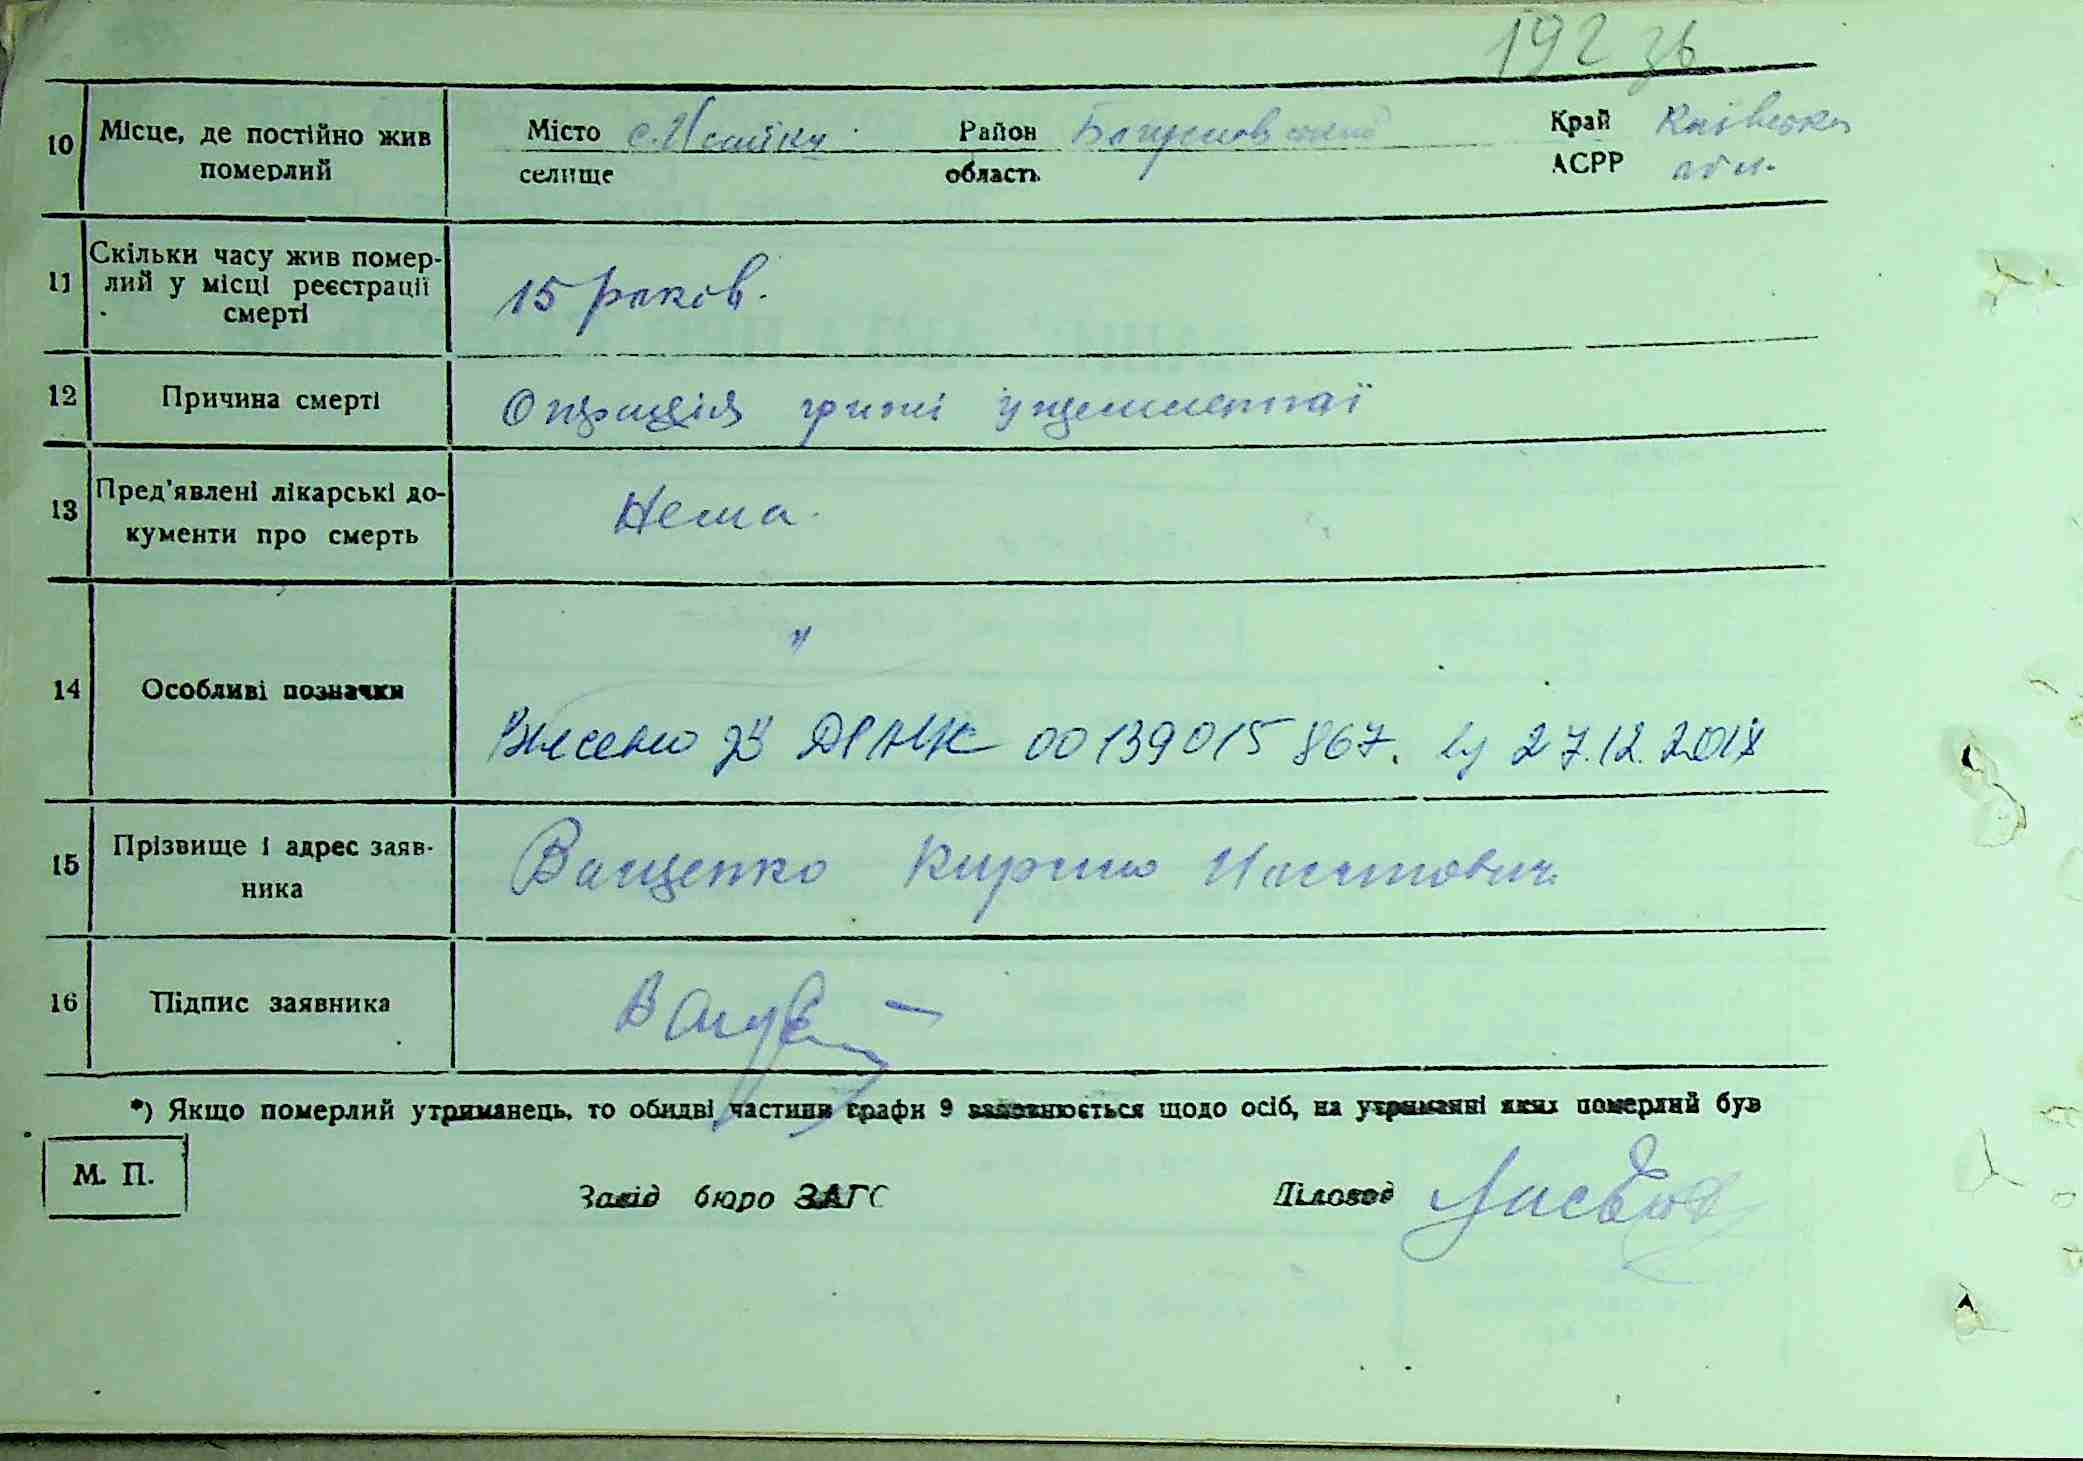 192 зв
10 Місце, де постійно жив Місто с. Исайки Район Богуславський Край Київська
померлий селище область АСРР обл.
11 Скільки часу жив помер-
лий у місці реєстрації 15 років.
смерті
12 Причина смерті Операція грижі ущемленної
13 Пред'явлені лікарські до- Нема.
кументи про смерть
"
14 Особливі позначки
Внесено ДРАЦС 00139015867. 27.12.2018
15 Прізвище і адрес заяв- Ващенко Кирило
ника
16 Підпис заявника
*) Якщо померлий утриманець, то обидві частини графи 9 заповнюється щодо осіб, на утриманні яких померлий був
М. П.
Завід бюро ЗАГС Діловод